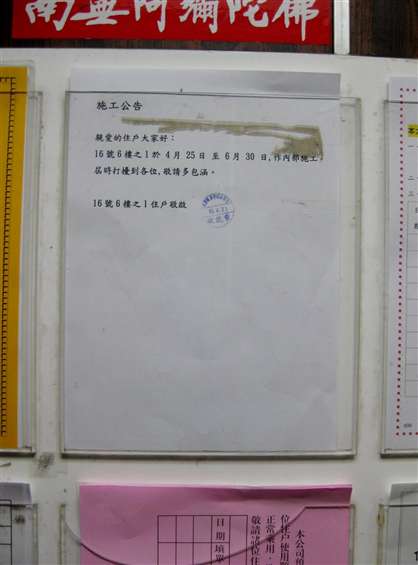 南無阿彌陀佛
施工公告
親愛的住戶大家好：
16號6樓之1於 4月25日 至 6月30日,作內部施工,
屆時打擾到各位,敬請多包涵。
16號6樓之1住戶敬啟
本公司
位住戶使用
正常業用
敬請諸位住
日期
填單